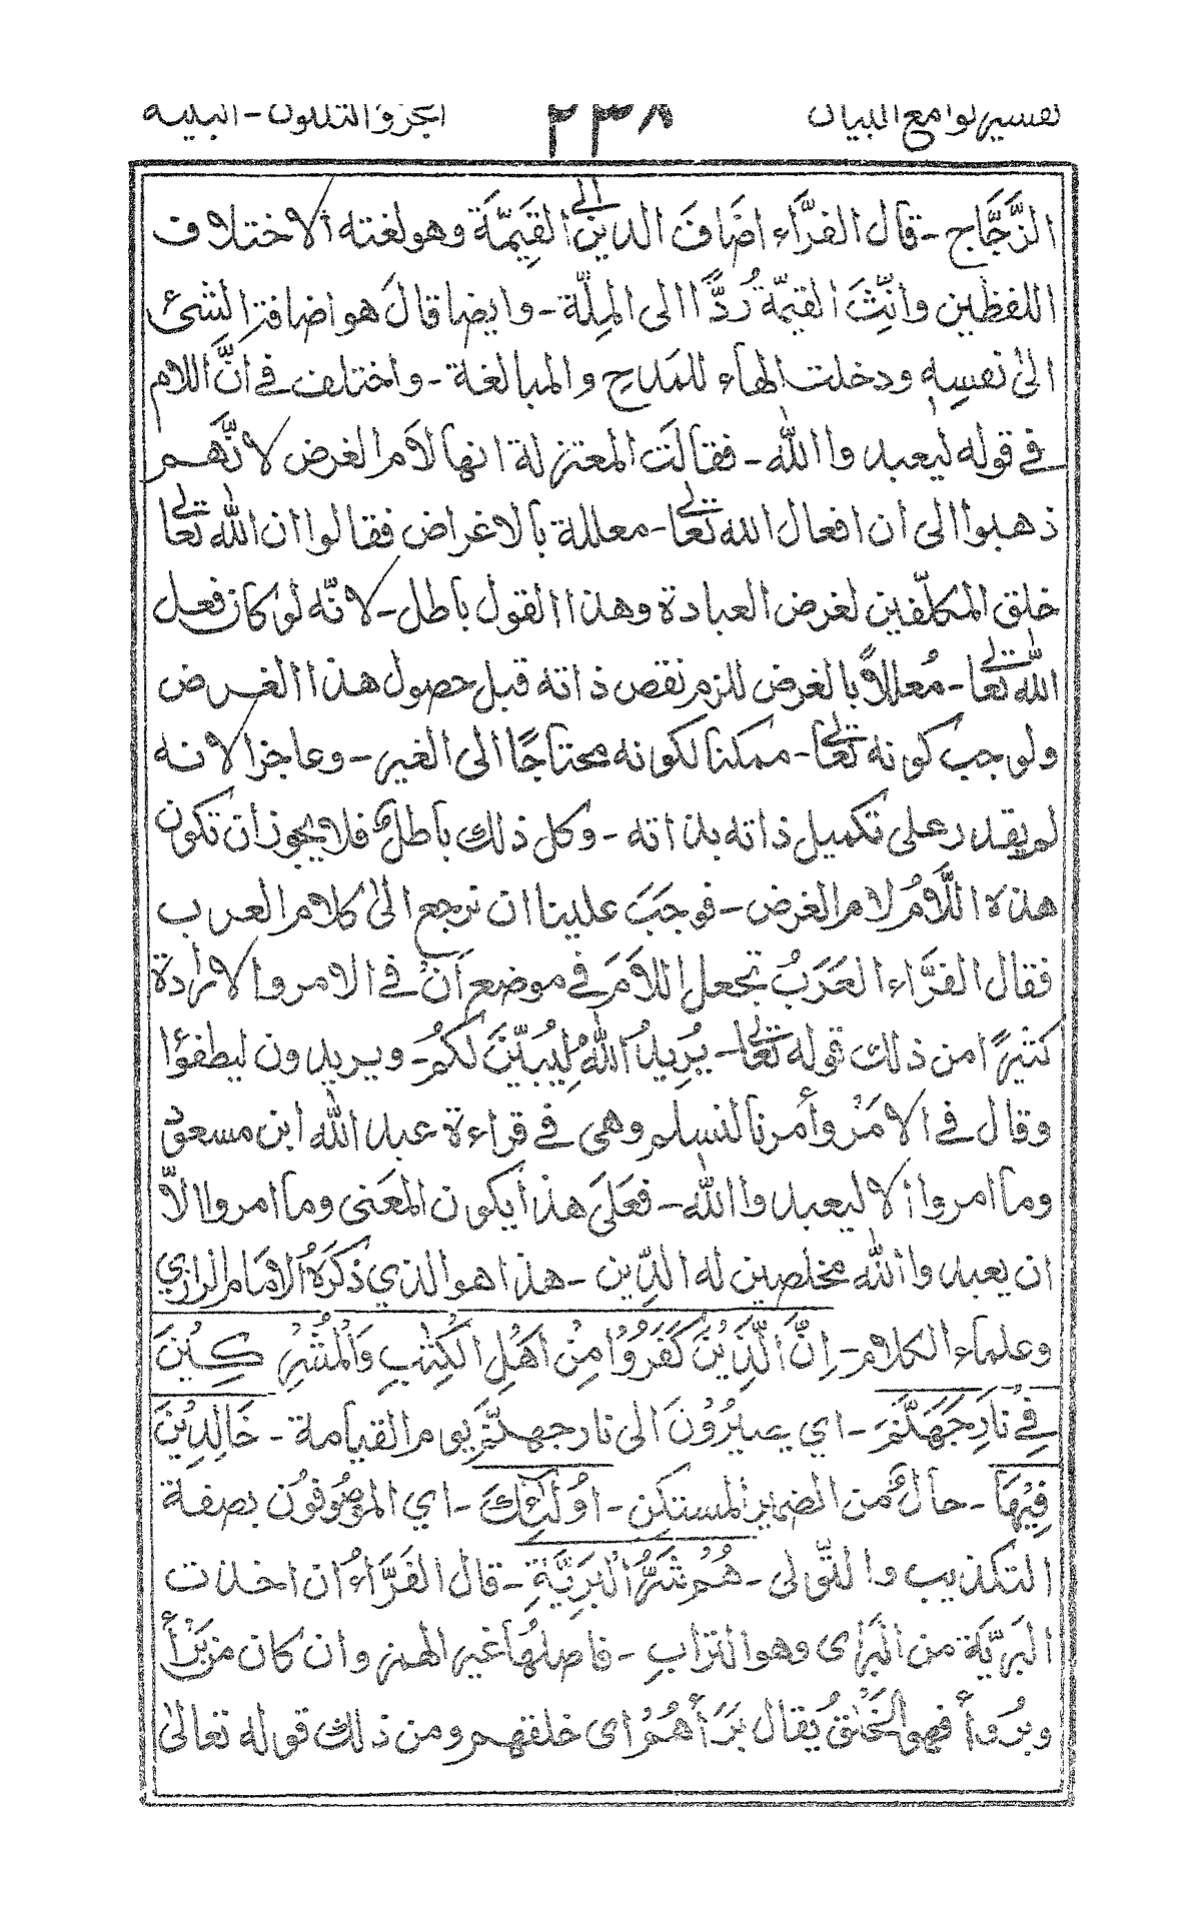 تفسير لوامع البيان ٢٣٨ الجزو الثلثون - البينه
الزَّجَّاج - قال الفرَّاء اضَافَ الدين الى القَيِّمَّة وهو لغته الاختلاف
اللفظين وانِّثَ القيمّة رُدًّا الى المِلّة - وايضا قالَ هو اضافة الشئ
الىٰ نفسِه ودخلت الهاء للمَدح والمبالغة - واختلف فے انَّ اللام
فے قوله ليعبد وا الله - فقالَت المعتزلة انها لاَم الغرض لانَّهم
ذهبوا الى ان افعال الله تعالى - معللة بالاغراض فقالوا ان الله تعالى
خلق المكلّفين لغرض العبادة وهذا القول باطل - لانّه لو كان فعل
الله تعالى - مُعللاً بالغرض للزم نقص ذاته قبل حصول هذا الغرض
ولوجب كونه تعالى - ممكنا لكونه محتاجًا الى الغير - وعاجزا لانه
لم يقدر على تكميل ذاته بذاته - وكل ذلك باطلٌ فلا يجوز ان تكون
هذه اللَّامُ لام الغرض - فوجَبَ علينا ان نرجع الىٰ كلام العرب
فقال الفرَّاء العَرَبُ تجعل اللاَمَ فے موضع اَنْ فے الامر والارادة
كثيرًا من ذلك قوله تعالى - يُرِيدُ اللهُ لِيُبيِّنَ لَكُمْ - ويريدون ليطفؤا
وقال فے الامَرْ وأمرنا لنسلم وهى فے قراءة عبد الله ابن مسعود
وما امروا الا ليعبد وا الله - فعَلَى هذا يكون المعَنى وما امروا الاَّ
ان يعبد وا الله مخلصين له الدِّين - هذا هو الذي ذكرَهُ الامَام الرازي
وعلماء الكلام - اِنَّ الَّذِيْنَ كَفَرُوْا مِنْ اَهْلِ الْكِتٰبِ وَالْمُشْرِكِيْنَ
فِےْ نَارِ جَهَنَّمَ - اي يصيرُوْنَ الى نار جهنّم يوم القيامة - خَالِدِيْنَ
فِيْهَا - حالٌ من الضمير المستكن - اُولٰٓئِكَ - اي الموصُوفُوْن بصفة
التكذيب والتّولى - هُمْ شَرُّ الْبَرِيَّةِ - قال الفَرَّاءُ ان اخذت
البَريَّة من البَرٰى وهو الترابِ - فاصلهُا غير الهمز وان كان من بَرَأَ
وبُروأ فهو الخَلْقُ يُقال بَرَأَهُمْ اى خلقهم ومن ذلك قوله تعالىٰ